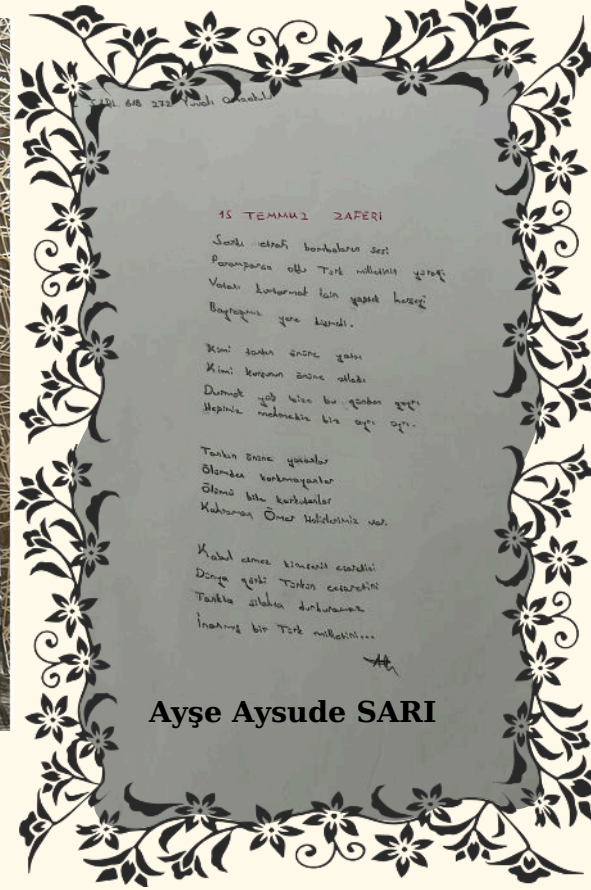 SARI 6/B 272 Yuvalı Ortaokulu
15 TEMMUZ ZAFERİ
Sardı etrafı bombaların sesi
Paramparça oldu Türk milletinin yüreği
Vatanı kurtarmak için yaptık herşeyi
Bayrağımız yere düşmedi.
Kimi tankın önüne yattı
Kimi kurşunun önüne atladı
Durmak yok bize bu günden gayrı
Hepimiz mehmediz biz ayrı ayrı.
Tankın önüne yatanlar
Ölümden korkmayanlar
Ölümü bile korkutanlar
Kahraman Ömer Halisdemirimiz var.
Kabul etmez kimsenin esaretini
Dünya gördü Türkün cesaretini
Tankla silahla durduramaz
İnanmış bir Türk milletini...
Ayşe Aysude SARI